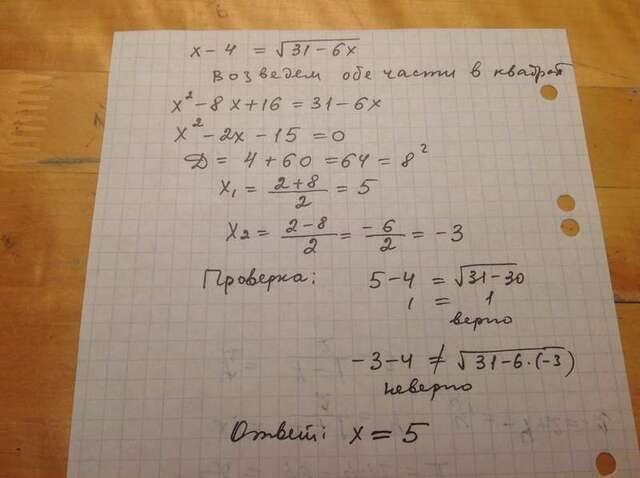 x - 4 = √31 - 6x
Возведем обе части в квадрат
x² - 8x + 16 = 31 - 6x
x² - 2x - 15 = 0
Д = 4 + 60 = 64 = 8²
x₁ = (2+8)/2 = 5
x₂ = (2-8)/2 = -6/2 = -3
Проверка: 5 - 4 = √31 - 30
1 = 1
верно
-3 - 4 ≠ √31 - 6·(-3)
неверно
Ответ: x = 5